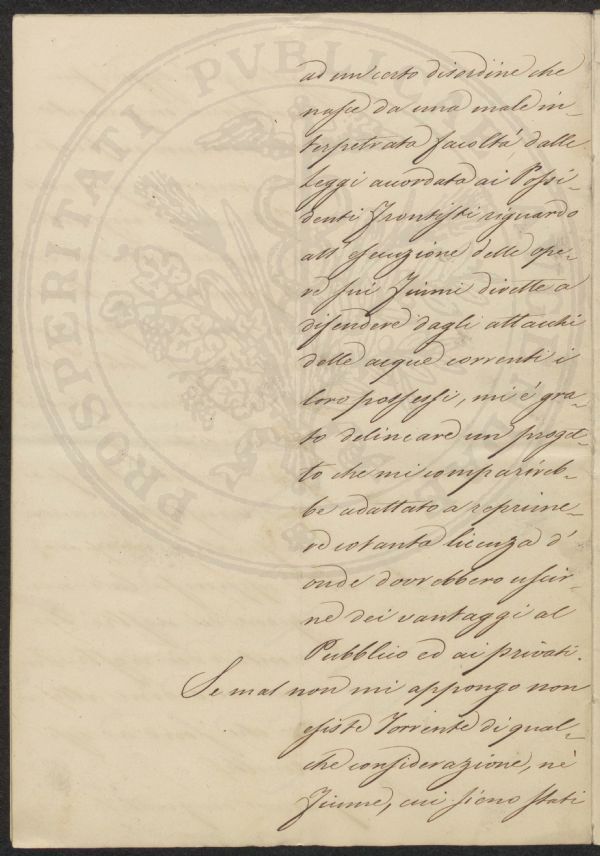 ad un certo disordine che
nasce da una male in-
terpetrata facoltà, dalle
Leggi accordata ai Possi-
denti Frontisti riguardo
all'esecuzione delle ope-
re sui Fiumi dirette a
difendere dagli attacchi
delle acque correnti i
loro possessi, mi è gra-
to delineare un proget-
to che mi comparireb-
be adattato a reprime-
re cotanta licenza d'
onde dovrebbero uscir-
ne dei vantaggi al
Pubblico ed ai privati.
Se mal non mi appongo non
esiste Torrente di qual-
che considerazione, nè
Fiume, cui sieno stati
PROSPERITATI PVBLICAE